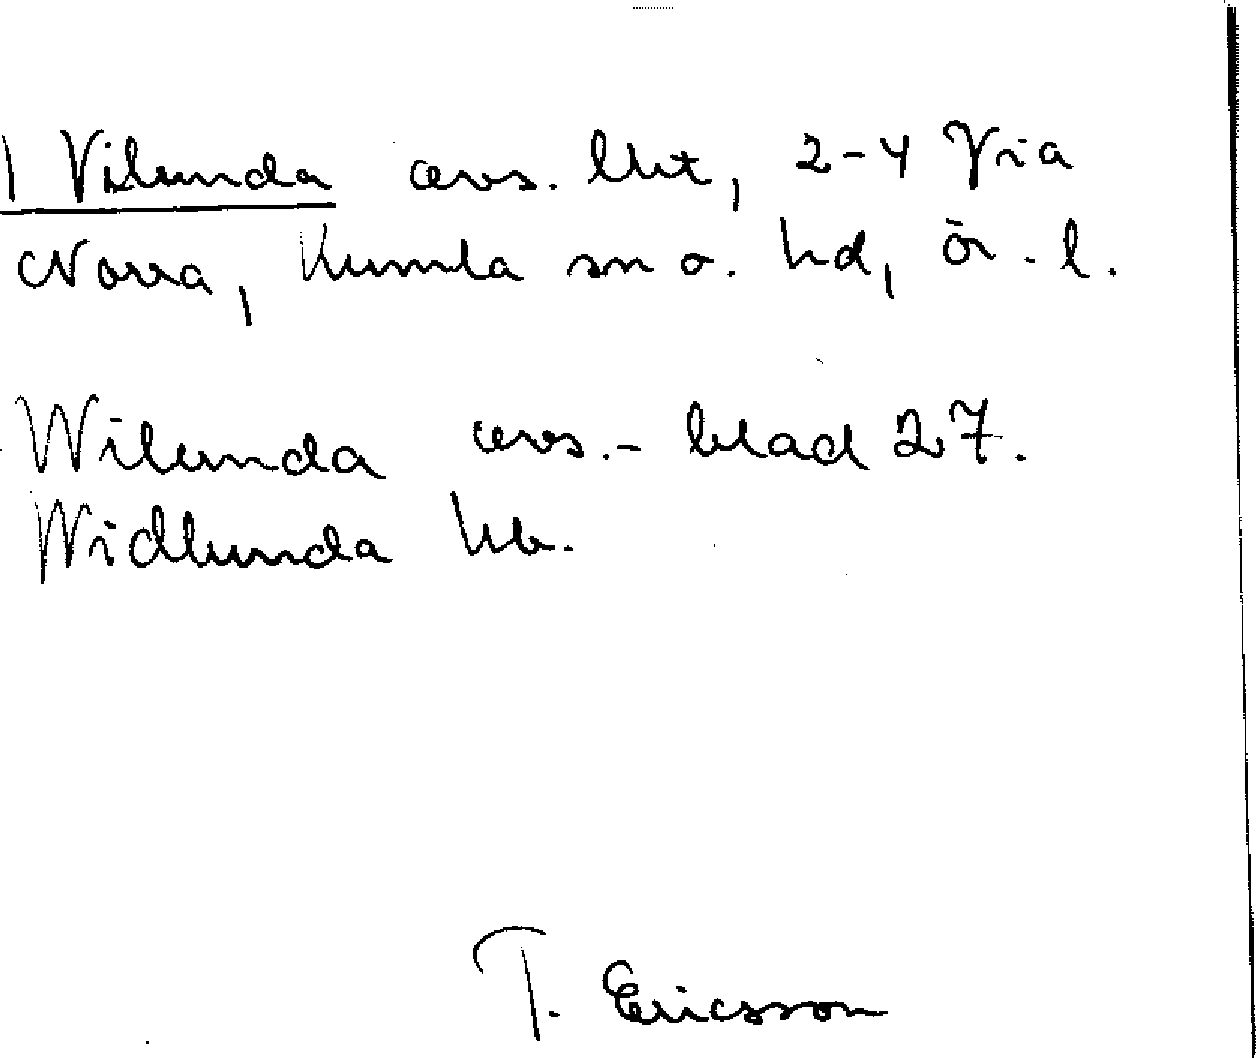 Vilunda avs. lht, 2-4 Via
Norra, Kumla sn o. hd, Ör. l.
Wilunda avs.- blad 27.
Widlunda hb.
T. Ericsson